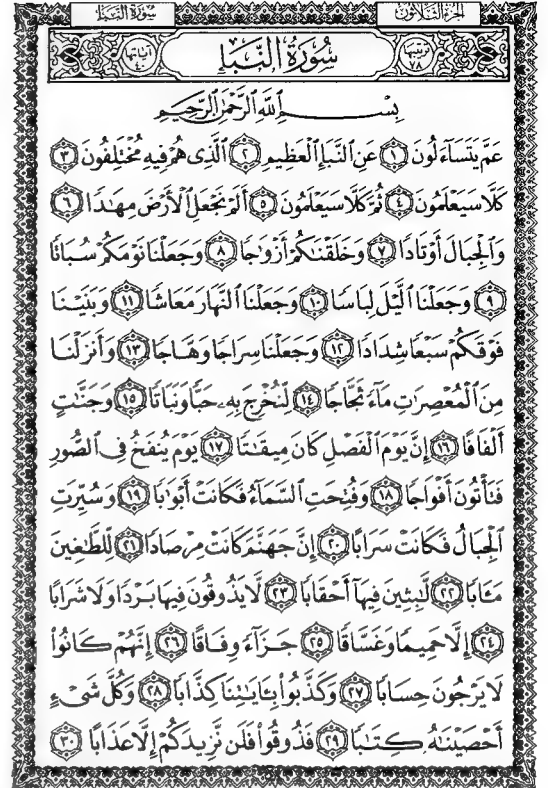 الجزء الثلاثون
سورة النبإ
ترتيبها ٧٨
سُورَةُ النَّبَإِ
آياتها ٤٠
بِسْمِ اللَّهِ الرَّحْمَٰنِ الرَّحِيمِ
عَمَّ يَتَسَآءَلُونَ ١ عَنِ النَّبَإِ الْعَظِيمِ ٢ الَّذِى هُمْ فِيهِ مُخْتَلِفُونَ ٣
كَلَّا سَيَعْلَمُونَ ٤ ثُمَّ كَلَّا سَيَعْلَمُونَ ٥ أَلَمْ نَجْعَلِ الْأَرْضَ مِهَٰدًا ٦
وَالْجِبَالَ أَوْتَادًا ٧ وَخَلَقْنَٰكُمْ أَزْوَٰجًا ٨ وَجَعَلْنَا نَوْمَكُمْ سُبَاتًا
٩ وَجَعَلْنَا الَّيْلَ لِبَاسًا ١٠ وَجَعَلْنَا النَّهَارَ مَعَاشًا ١١ وَبَنَيْنَا
فَوْقَكُمْ سَبْعًا شِدَادًا ١٢ وَجَعَلْنَا سِرَاجًا وَهَّاجًا ١٣ وَأَنزَلْنَا
مِنَ الْمُعْصِرَٰتِ مَآءً ثَجَّاجًا ١٤ لِّنُخْرِجَ بِهِۦ حَبًّا وَنَبَاتًا ١٥ وَجَنَّٰتٍ
أَلْفَافًا ١٦ إِنَّ يَوْمَ الْفَصْلِ كَانَ مِيقَٰتًا ١٧ يَوْمَ يُنفَخُ فِى الصُّورِ
فَتَأْتُونَ أَفْوَاجًا ١٨ وَفُتِحَتِ السَّمَآءُ فَكَانَتْ أَبْوَٰبًا ١٩ وَسُيِّرَتِ
الْجِبَالُ فَكَانَتْ سَرَابًا ٢٠ إِنَّ جَهَنَّمَ كَانَتْ مِرْصَادًا ٢١ لِّلطَّٰغِينَ
مَـَٔابًا ٢٢ لَّٰبِثِينَ فِيهَآ أَحْقَابًا ٢٣ لَّا يَذُوقُونَ فِيهَا بَرْدًا وَلَا شَرَابًا
٢٤ إِلَّا حَمِيمًا وَغَسَّاقًا ٢٥ جَزَآءً وِفَاقًا ٢٦ إِنَّهُمْ كَانُوا۟
لَا يَرْجُونَ حِسَابًا ٢٧ وَكَذَّبُوا۟ بِـَٔايَٰتِنَا كِذَّابًا ٢٨ وَكُلَّ شَىْءٍ
أَحْصَيْنَٰهُ كِتَٰبًا ٢٩ فَذُوقُوا۟ فَلَن نَّزِيدَكُمْ إِلَّا عَذَابًا ٣٠